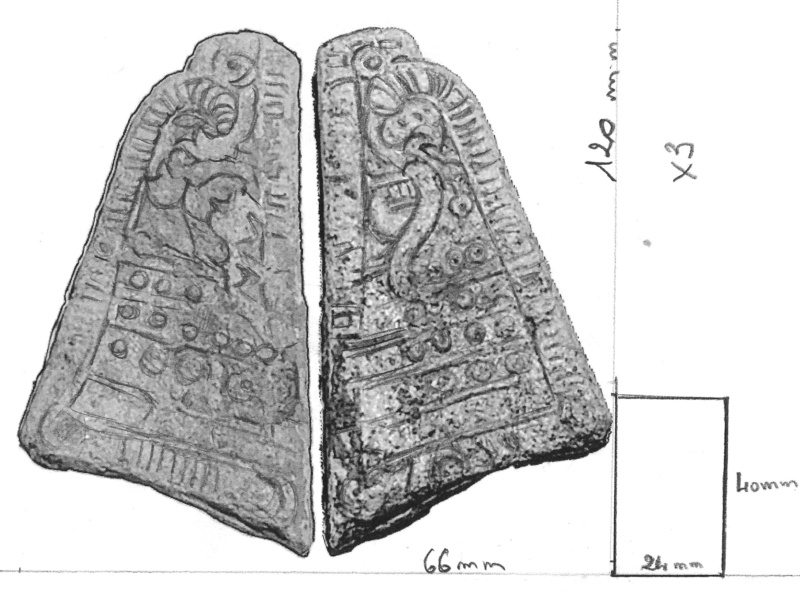 120 mm.
x3
40mm
66mm
24 mm